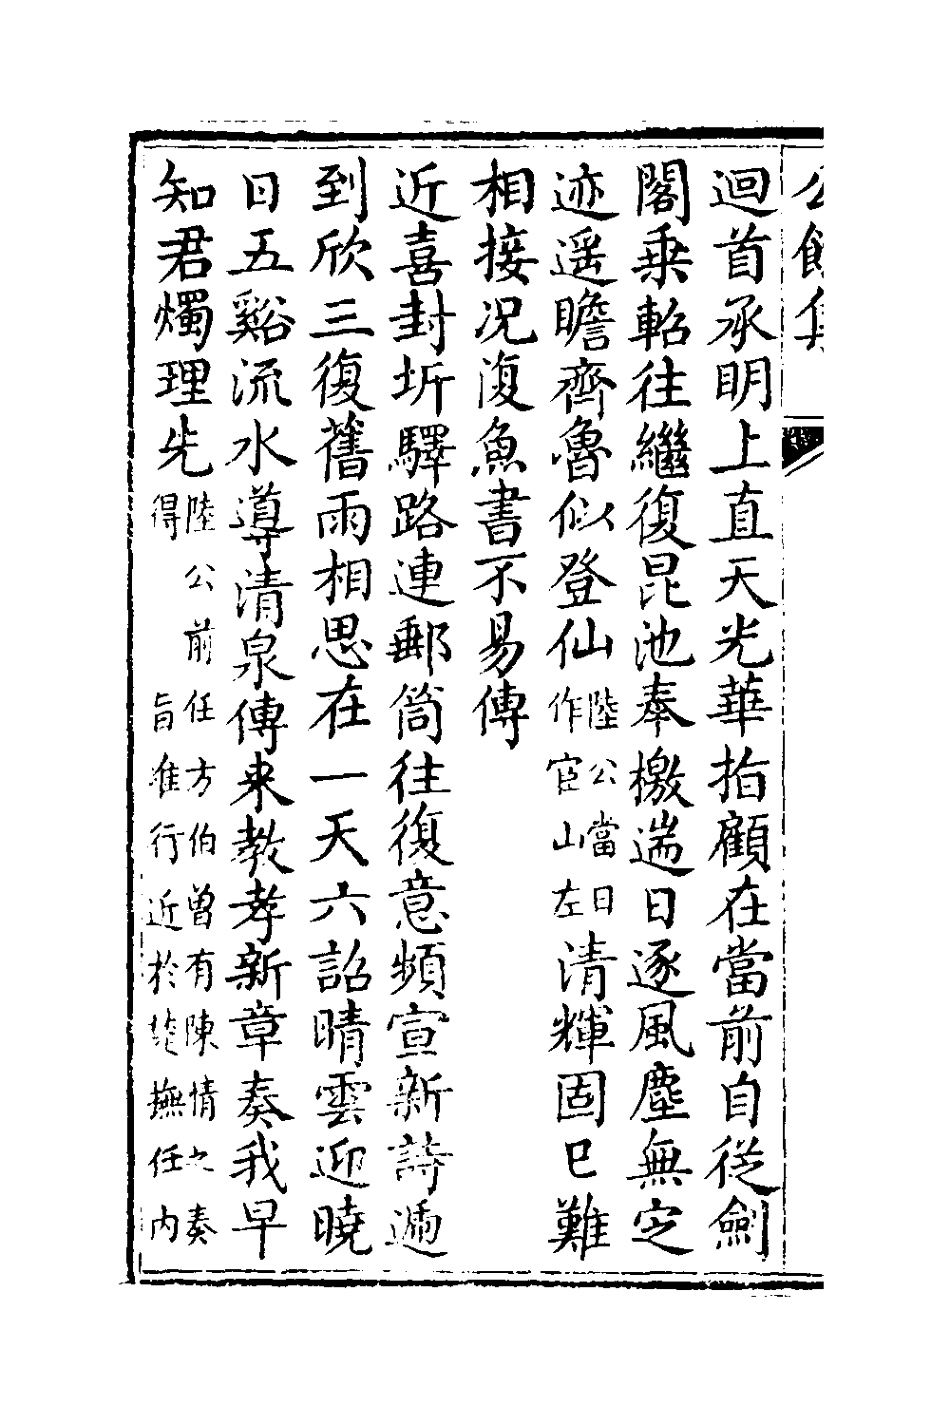 迴首承明上直天光華指顧在當前自從劍
閣乗軺往繼復昆池奉檄遄日逐風塵無定
迹遥瞻齊魯似登仙陸公當日作宦山左清輝固已難
相接况復魚書不易傳
近喜封圻驛路連郵筒往復意頻宣新詩遞
到欣三復舊雨相思在一天六詔晴雲迎曉
日五谿流水導清泉傳来教孝新章奏我早
知君燭理先陸公前任方伯曾有陳情之奏得旨准行近於楚撫任内